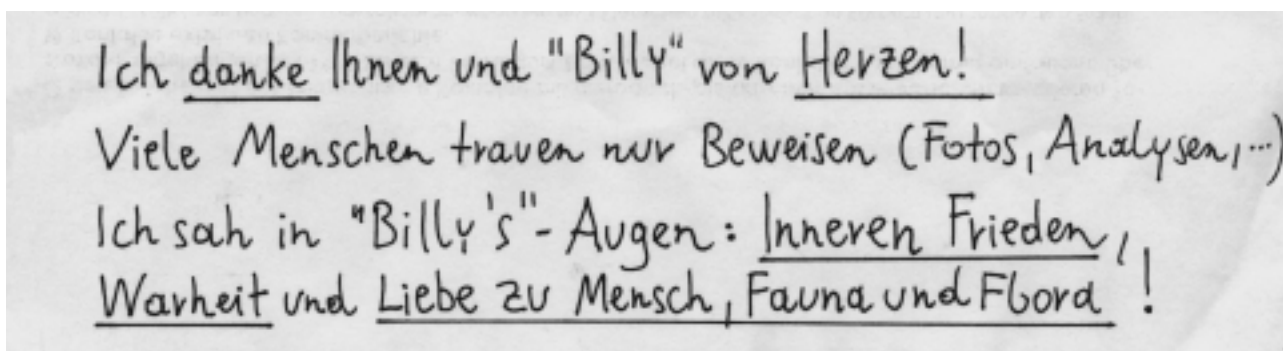 Ich danke Ihnen und "Billy" von Herzen!
Viele Menschen trauen nur Beweisen (Fotos, Analysen,...)
Ich sah in "Billy's"-Augen: Inneren Frieden,
Warheit und Liebe zu Mensch, Fauna und Flora !